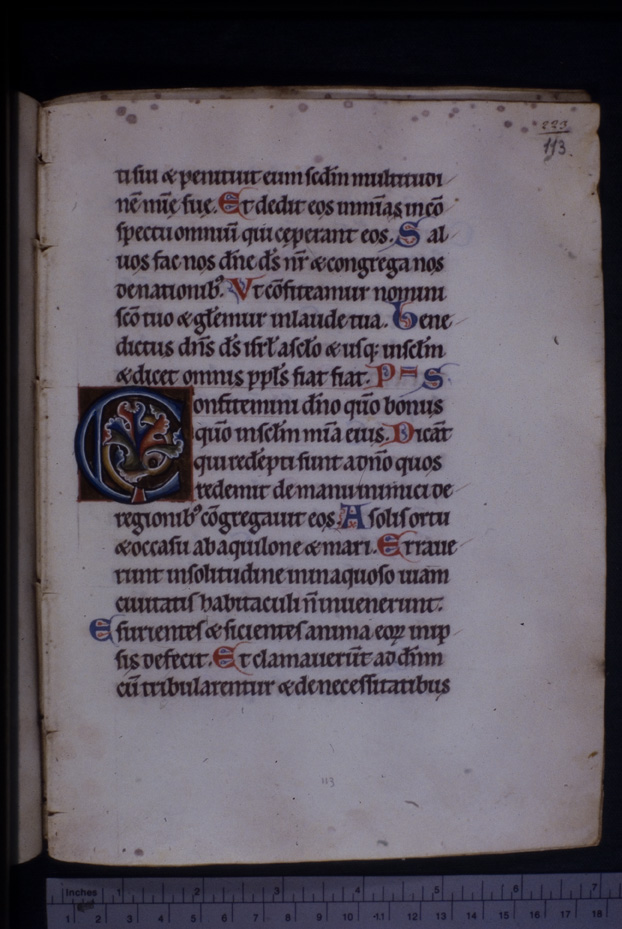 223
113
ti sui & penituit eum scd̄m multitudi
nē mīe suę. Et dedit eos in mīas in cō
spectu omniū qui cęperant eos. Sal
uos fac nos dn̄e d̄s nr̄ & congrega nos
de nationib᾿. Vt cōfiteamur nomini
scō tuo & gl̄emur in laude tua. Bene
dictus dn̄s d̄s isrl̄ a sclo & usq; in sclm̄
& dicet omnis ppl̄s fiat fiat. P=S
Confitemini dn̄o qūo bonus
qūo in sclm̄ mīa eius. Dicāt
qui redēpti sunt a dn̄o quos
redemit de manu inimici de
regionib᾿ cōgregauit eos. A solis ortu
& occasu ab aquilone & mari. Erraue
runt in solitudine in inaquoso uiam
ciuitatis habitaculi n̄ inuenerunt.
Esurientes & sicientes anima eoꝝ in ip
sis defecit. Et clamauerūt ad dn̄m
cū tribularentur & de necessitatibus
113
Inches 1 2 3 4 5 6 7
1 2 3 4 5 6 7 8 9 10 11 12 13 14 15 16 17 18